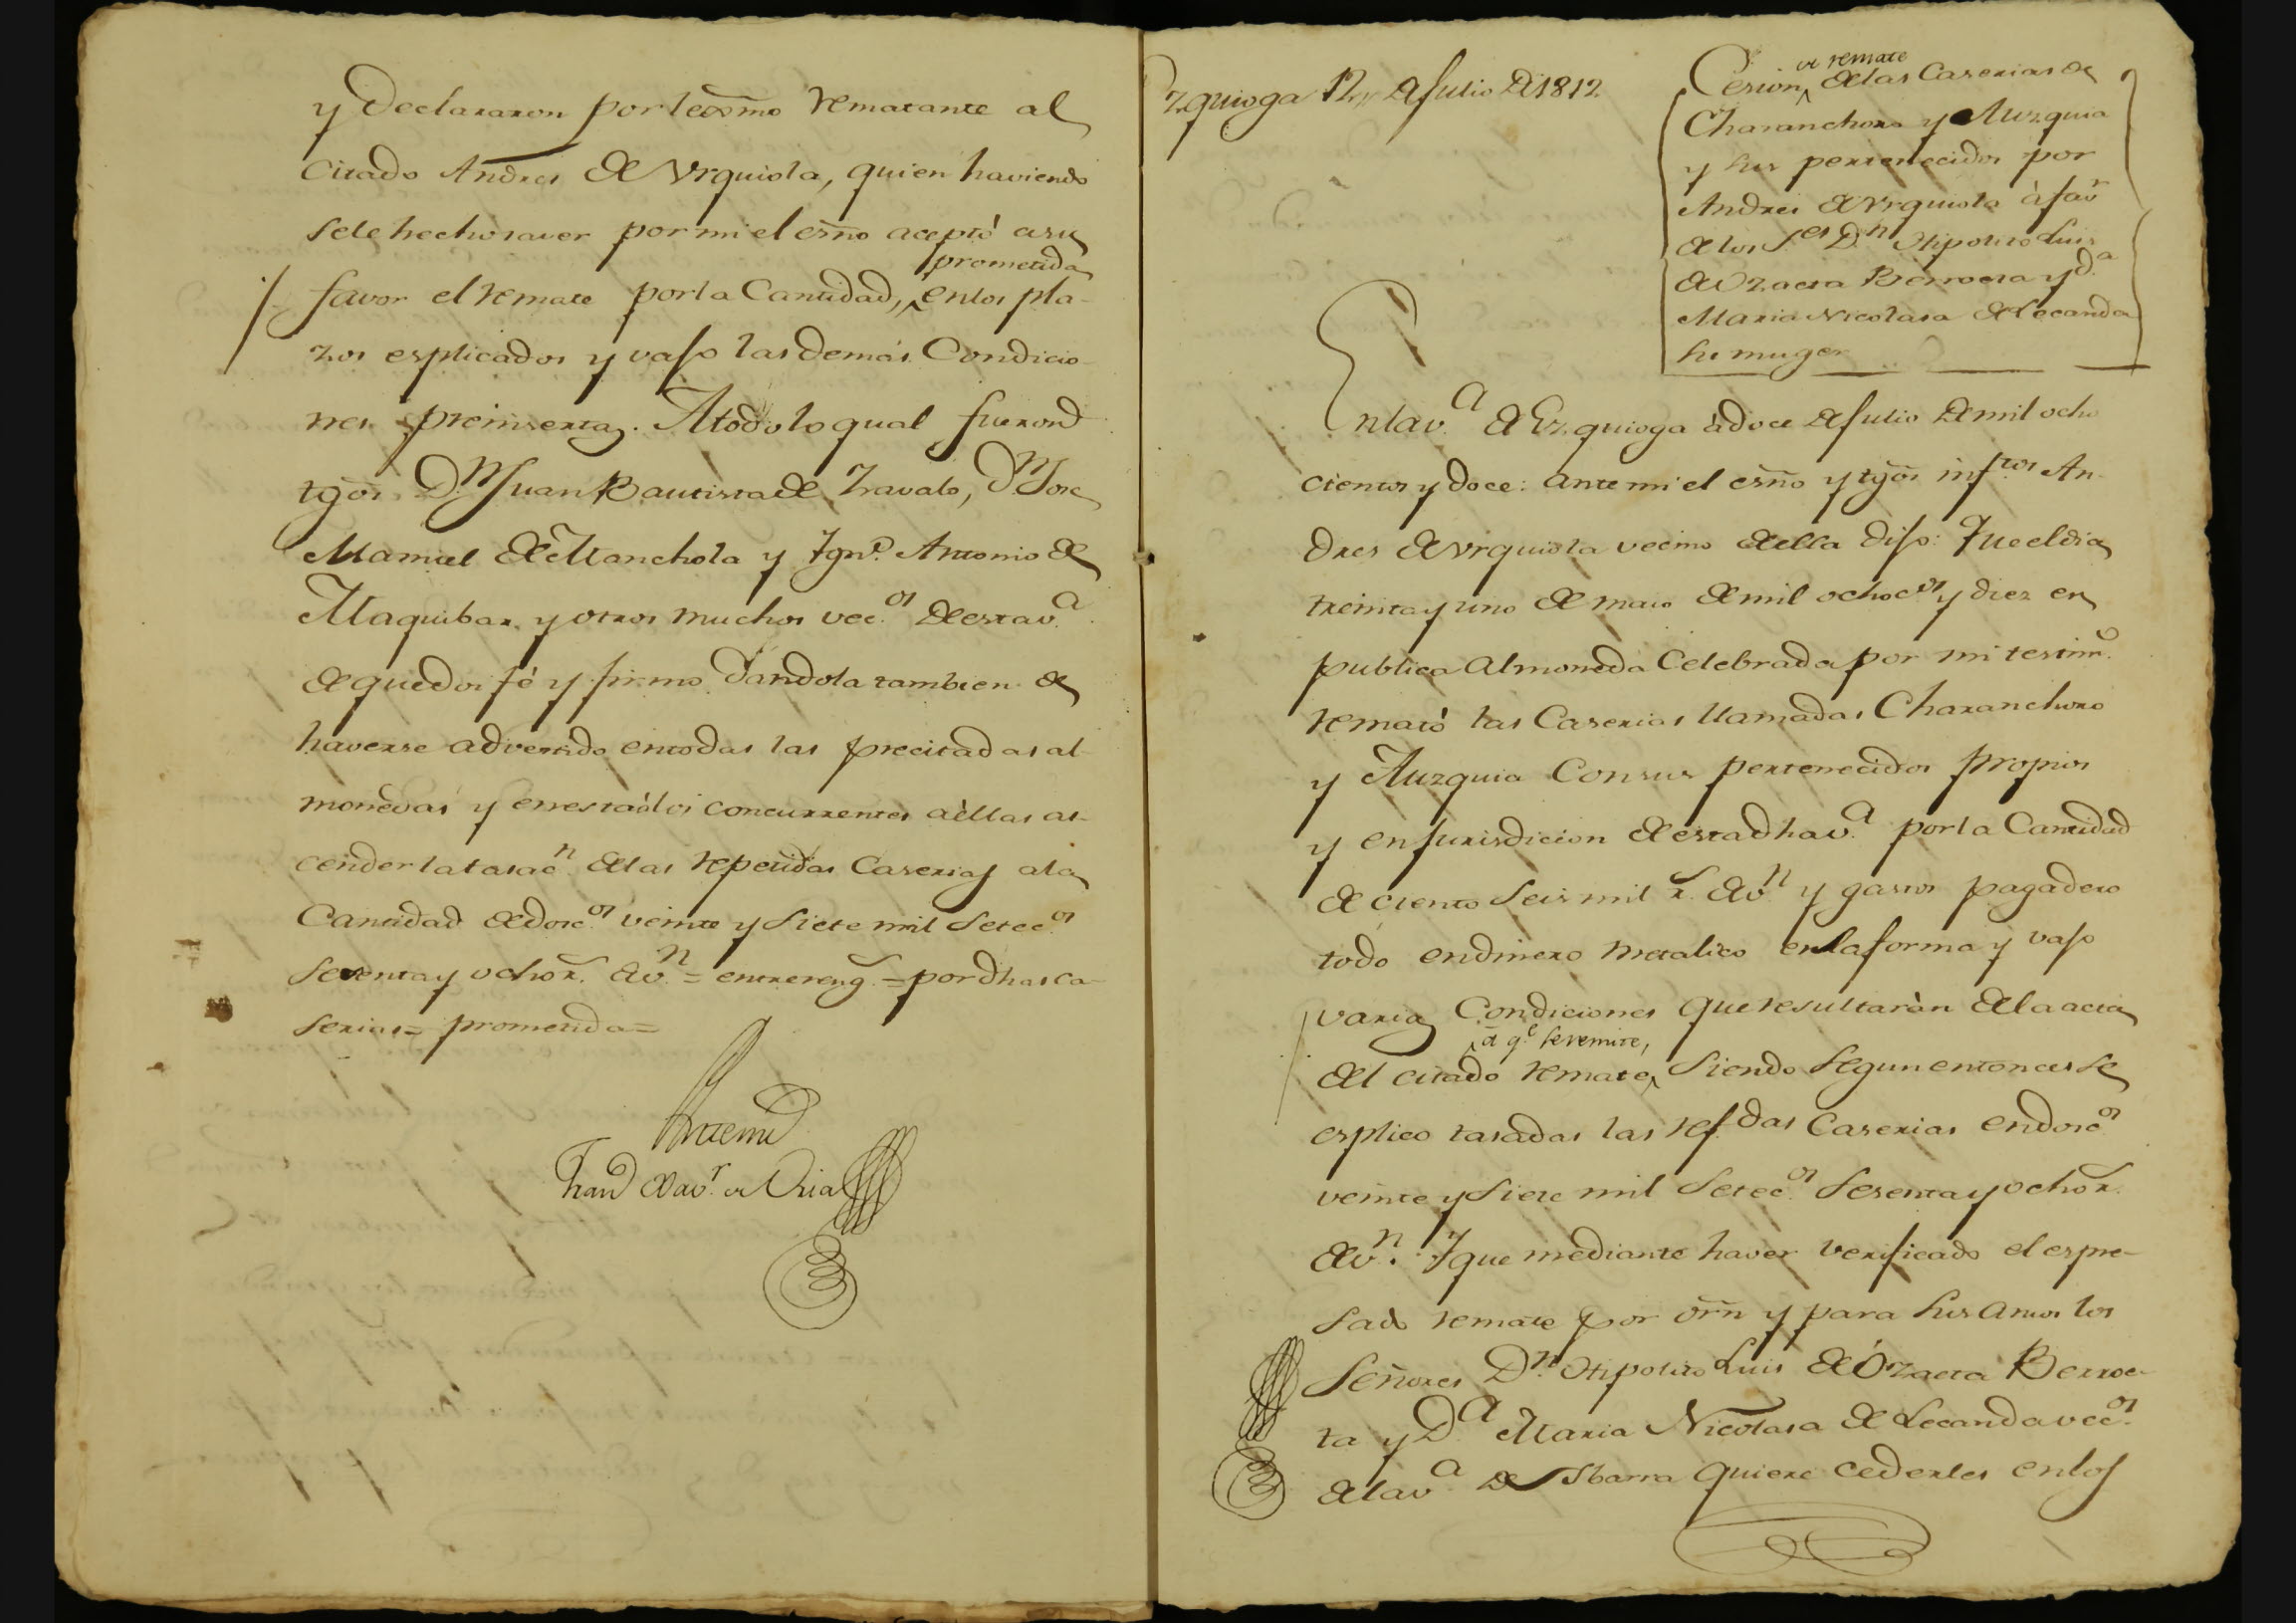 y declararon por lexmo rematante al
citado Andres de Vrquiola, quien haviendo
sele hecho saver por mi el esño aceptó a su
prometida
favor el remate por la Cantidad, en los pla-
zos esplicados y vajo las demás Condicio-
nes preinsertas. A todo lo qual fueron
tgos. Dn. Juan Bautista de Zavalo, Dn. Jose
Manuel de Manchola y Ygno. Antonio de
Maquibar y otros muchos vecos. de esta va.
de que doi fé y firmo dandola tambien de
haverse advertido en todas las precitadas al-
monedas y en esta á los concurrentes à ellas as-
cender la tasacn. de las repetidas Caserias a la
Cantidad de doscos. veinte y siete mil setecos.
sesenta y ocho rs. de vn. = entrereng.s = por dhas ca-
serias = prometida =
Ante mi
Franco Xavr. de Oria
Ezquioga 12 de Julio de 1812
de remate
Cesion de las Caserias de
Charanchoro y Auzquia
y sus pertenecidos por
Andres de Vrquiola à favr
de los Ses. Dn. Hipolito Luis
de Ozaeta Berroeta y da.
Maria Nicolasa de Lecanda
su muger
En la va. de Ezquioga à doce de Julio de mil ocho
cientos y doce: ante mi el esño y tgos inftos. An-
dres de Vrquiola vecino de ella dijo: Que el dia
treinta y uno de maio de mil ochocos. y diez en
publica almoneda Celebrada por mi testimo.
remató las Caserias llamadas Charanchoro
y Auzquia Con sus pertenecidos propios
y en Jurisdicion de esta dha va. por la Cantidad
de ciento seis mil rs. de vn. y gastos pagadero
todo en dinero metalico en la forma y vajo
varias Condiciones que resultaràn de la acta
à qe. se remite,
del citado remate, siendo segun entonces se
esplico tasadas las refdas Caserias en doscos.
veinte y siete mil setecos. sesenta y ocho rs.
de vn. Y que mediante haver verificado el espre-
sado remate por orñ y para sus amos los
Señores Dn. Hipolito Luis de Ozaeta Berroe-
ta y Da. Maria Nicolasa de Lecanda vecos.
de la va. de Ybarra quiere cederles en los